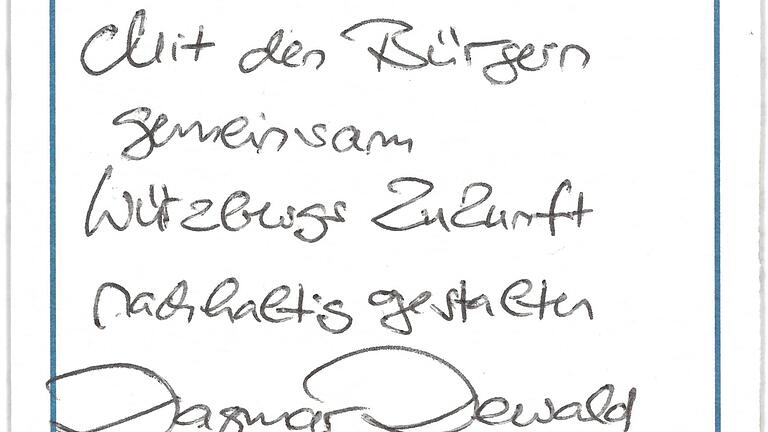 Mit den Bürgern
gemeinsam
Würzburgs Zukunft
nachhaltig gestalten
Dagmar Dewald